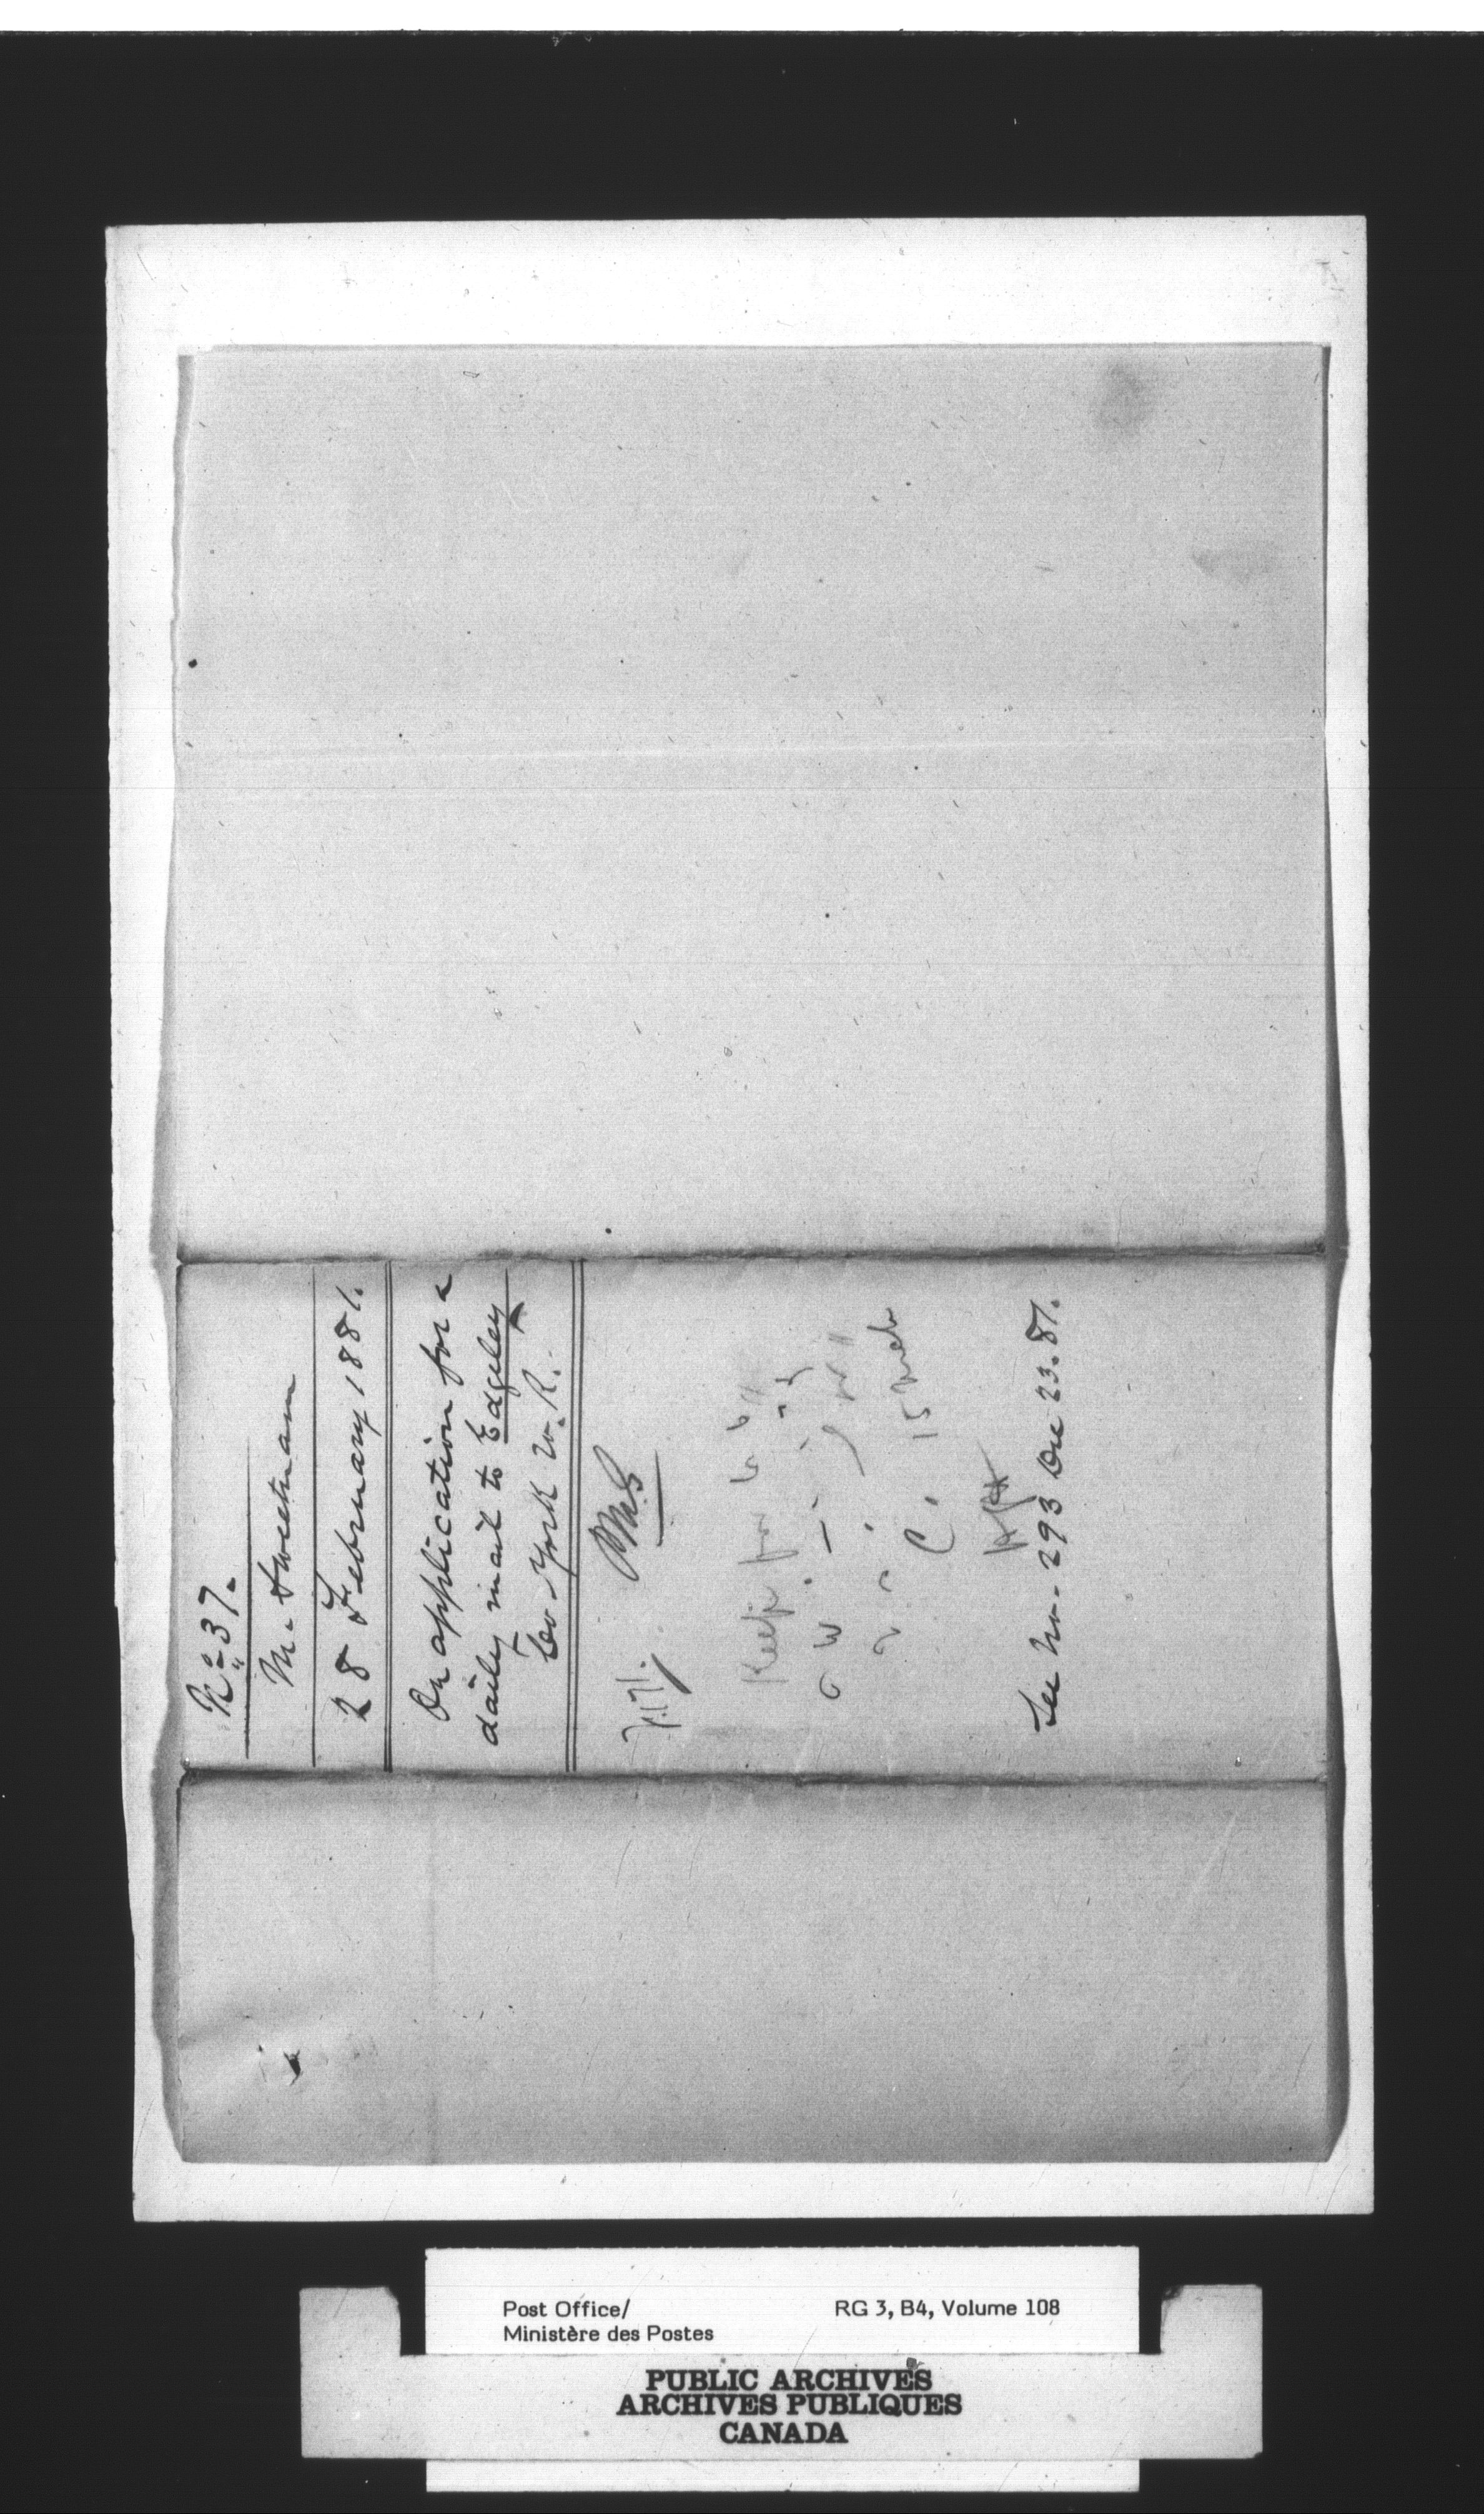 No. 37.
M. Sweetnam
28 February 1881.
On application for a
daily mail to Edgeley
Co York W. R.
PMG
Keep for
C. 15 Mch
See No. 293 Dec 23. 81.
Post Office/
Ministère des Postes
RG 3, B4, Volume 108
PUBLIC ARCHIVES
ARCHIVES PUBLIQUES
CANADA